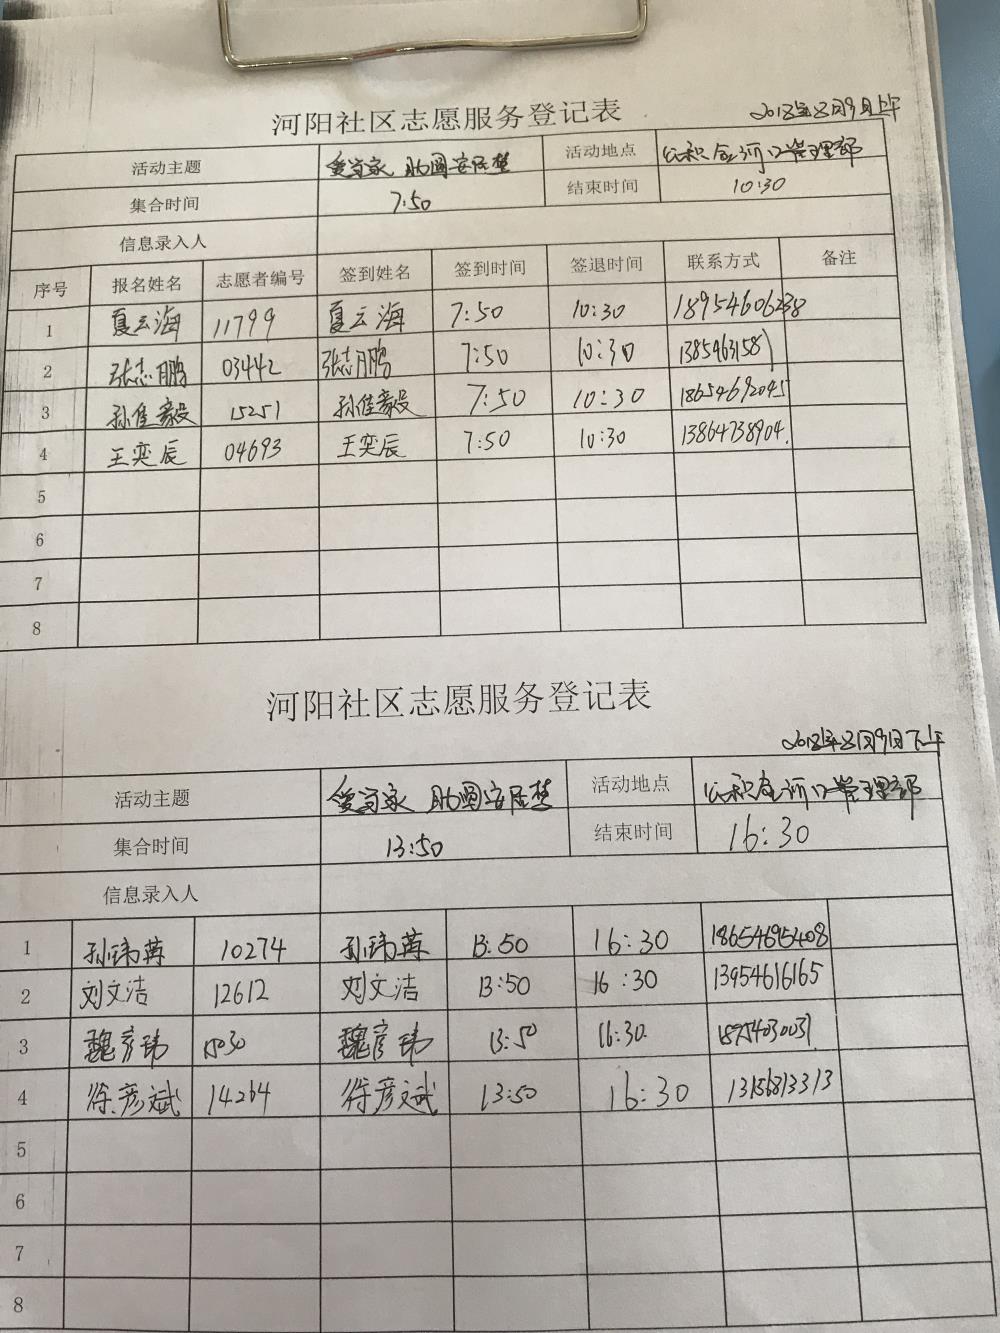 河阳社区志愿服务登记表
2018年8月9日上午
活动主题 爱万家 助圆安居梦 活动地点 公积金河口管理部
集合时间 7:50 结束时间 10:30
信息录入人
序号 报名姓名 志愿者编号 签到姓名 签到时间 签退时间 联系方式 备注
1 夏云海 11799 夏云海 7:50 10:30
2 张志鹏 03442 张志鹏 7:50 10:30
3 孙佳毅 15251 孙佳毅 7:50 10:30 18654692045
4 王奕辰 04693 王奕辰 7:50 10:30 13864738904.
5
6
7
8
河阳社区志愿服务登记表
2018年8月9日下午
活动主题 爱万家 助圆安居梦 活动地点 公积金河口管理部
集合时间 13:50 结束时间 16:30
信息录入人
1 孙玮苒 10274 孙玮苒 13:50 16:30 18654695408
2 刘文洁 12612 刘文洁 13:50 16:30 13954616165
3 魏彦玮 魏彦玮 13:50 16:30. 18754030031
4 徐彦斌 14264 徐彦斌 13:50 16:30 13156813313
5
6
7
8